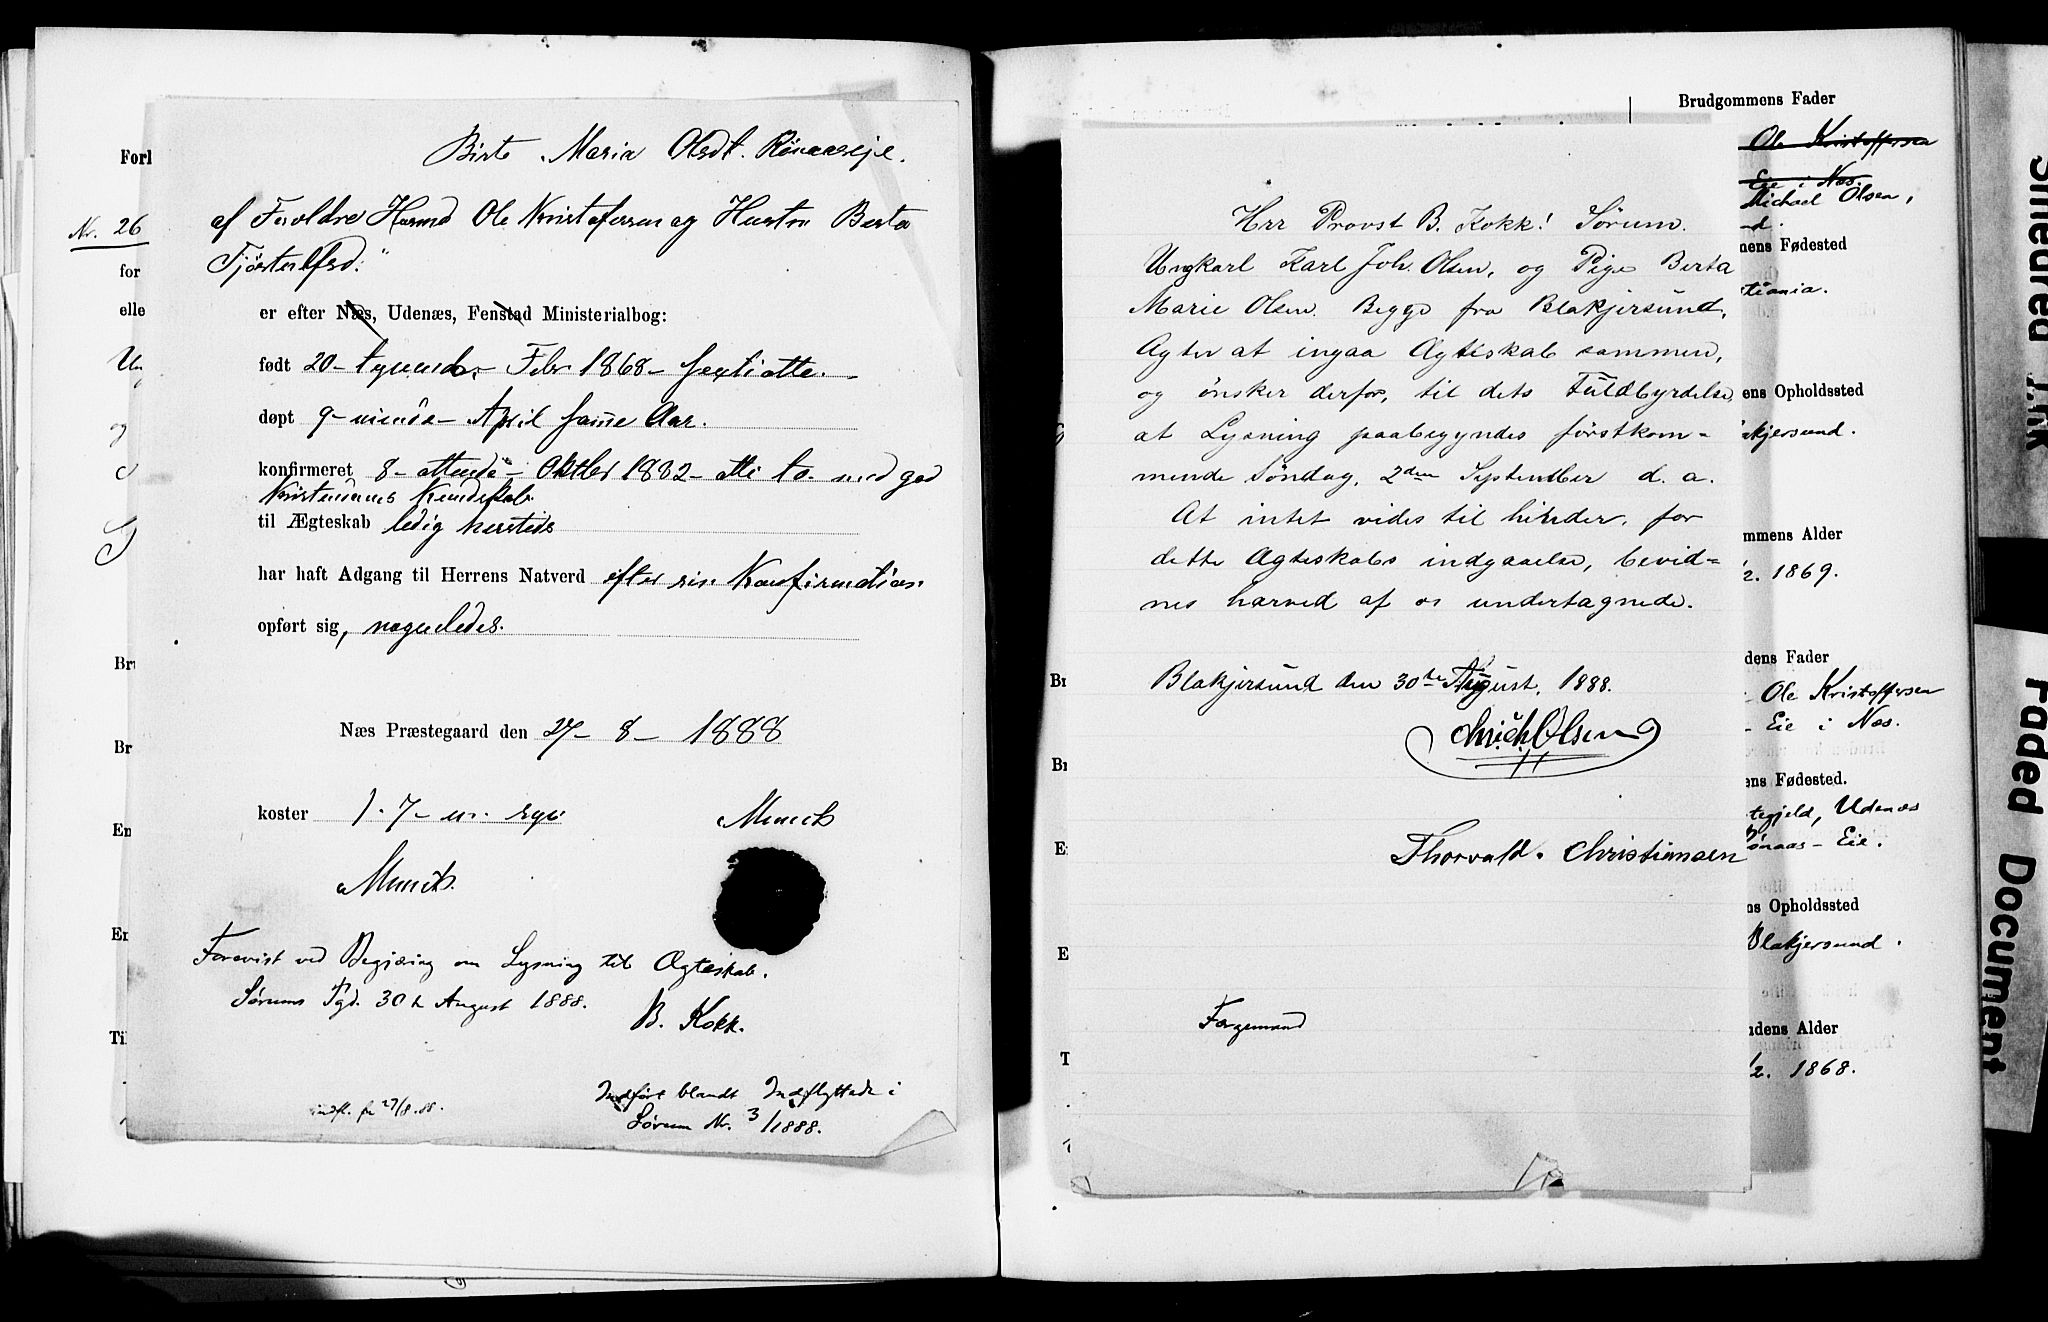 Forl
Nr. 26
for
elle
Un
og
Br
Br
En
En
Til
Birte Maria Olsdt. Rönaaseje.
af Foreldre Huusmd Ole Kristofersen og Hustru Berta
Tjöstelsd:
er efter Næs, Udenæs, Fenstad Ministerialbog:
født 20 - tyvende - Febr 1868 - sexti otte. -
døpt 9 - niende - April samme Aar.
konfirmeret 8 - ottende - Oktbr 1882 - otti to med god
Kristendoms Kundskab
til Ægteskab ledig hersteds
har haft Adgang til Herrens Natverd efter sin Konfirmation
opført sig, nogenledes.
Næs Præstegaard den 27 - 8 - 1888
koster 1. 7
Munch
Munch.
Forevist ved Begjæring om Lysning til Ægteskab.
Sörums Pgd. 30 August 1888.
B. Kokk.
indfl. fra 27/8.88.
Indfört blandt Indflyttede i
Sörum Nr. 3/1888.
Brudgommens Fader
Ole Kristoffersen
Eie i Næs.
Michael Olsen,
d.
mens Fødested
tiania.
ens Opholdssted
akjersund.
mmens Alder
/2. 1869.
dens Fader
Ole Kristoffersen
- Eie i Næs.
ens Fødested.
tegjeld, Udenæs
önaas - Eie.
ns Opholdssted
Blakjersund.
ndens Alder
/2. 1868.
Herr Provst B. Kokk! Sörum.
Ungkarl Karl Joh. Olsen, og Pige Berta
Marie Olsen. Begge fra Blakjersund,
Agter at ingaa Ægteskab sammen,
og önsker derfor, til dets Fuldbyrdelse,
at Lysning paabegyndes förstkom-
mende Söndag, 2den September d. a.
At intet vides til hinder, for
dette Ægteskabs indgaaelse, bevid-
nes herved af os undertegnede.
Blakjersund den 30te August, 1888.
Chrich. Olsen
Thorvald. Christiansen
Færgemand
Br
B
E
E
T
Smeared Ink
Faded Document